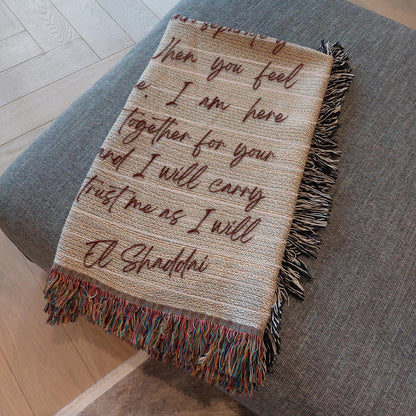 When you feel
I am here
together for your
and I will carry
trust me as I will
El Shaddai